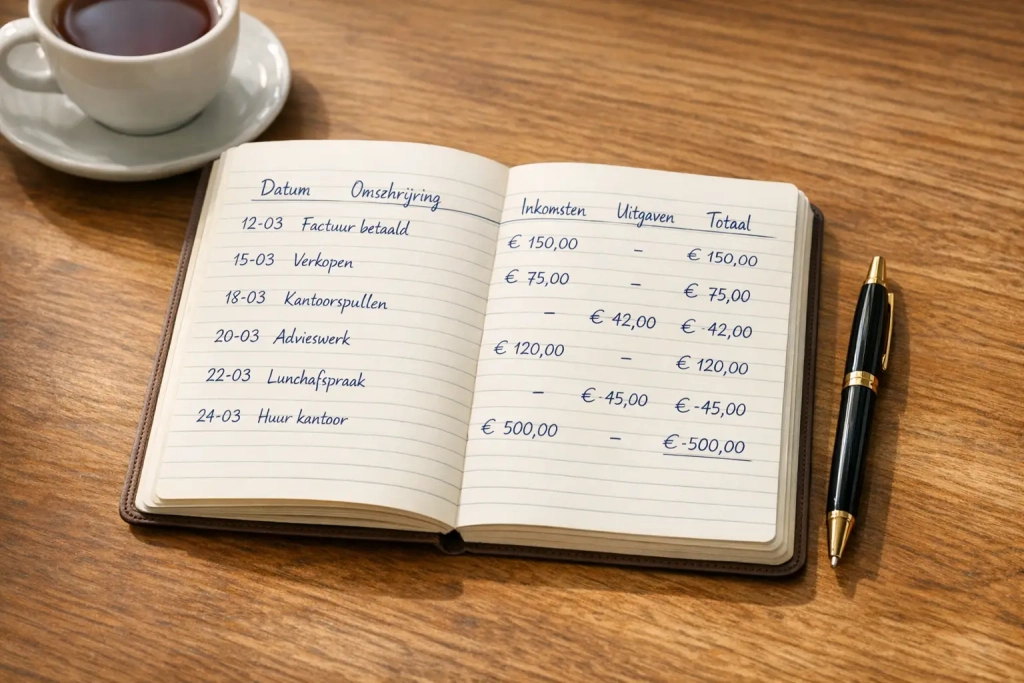 Datum Omszhrijving Inkomsten Uitgaven Totaal
12-03 Factuur betaald € 150,00 – € 150,00
15-03 Verkopen € 75,00 – € 75,00
18-03 Kantoorspullen – € 42,00 € -42,00
20-03 Advieswerk € 120,00 – € 120,00
22-03 Lunchafspraak – € -45,00 € -45,00
24-03 Huur kantoor € 500,00 – € -500,00